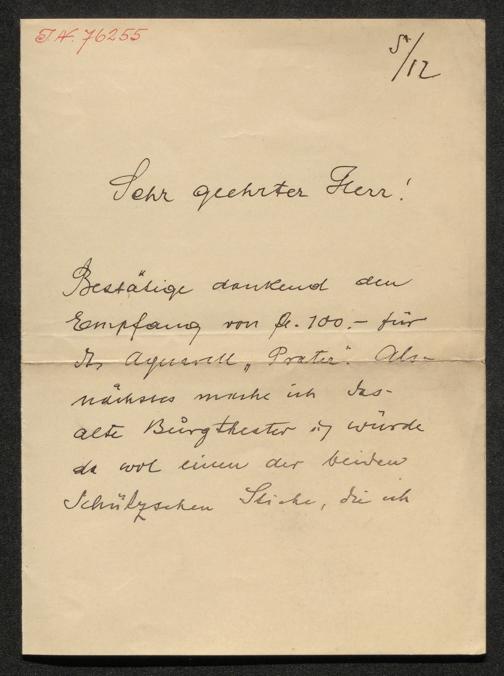 I.N. 76255
5/12
Sehr geehrter Herr!
Bestätige dankend den
Empfang von fl. 100.– für
das Aquarell „Prater". Als-
nächstes mache ich das-
alte Burgtheater u. würde
da wol einen der beiden
Schützschen Stiche, die ich